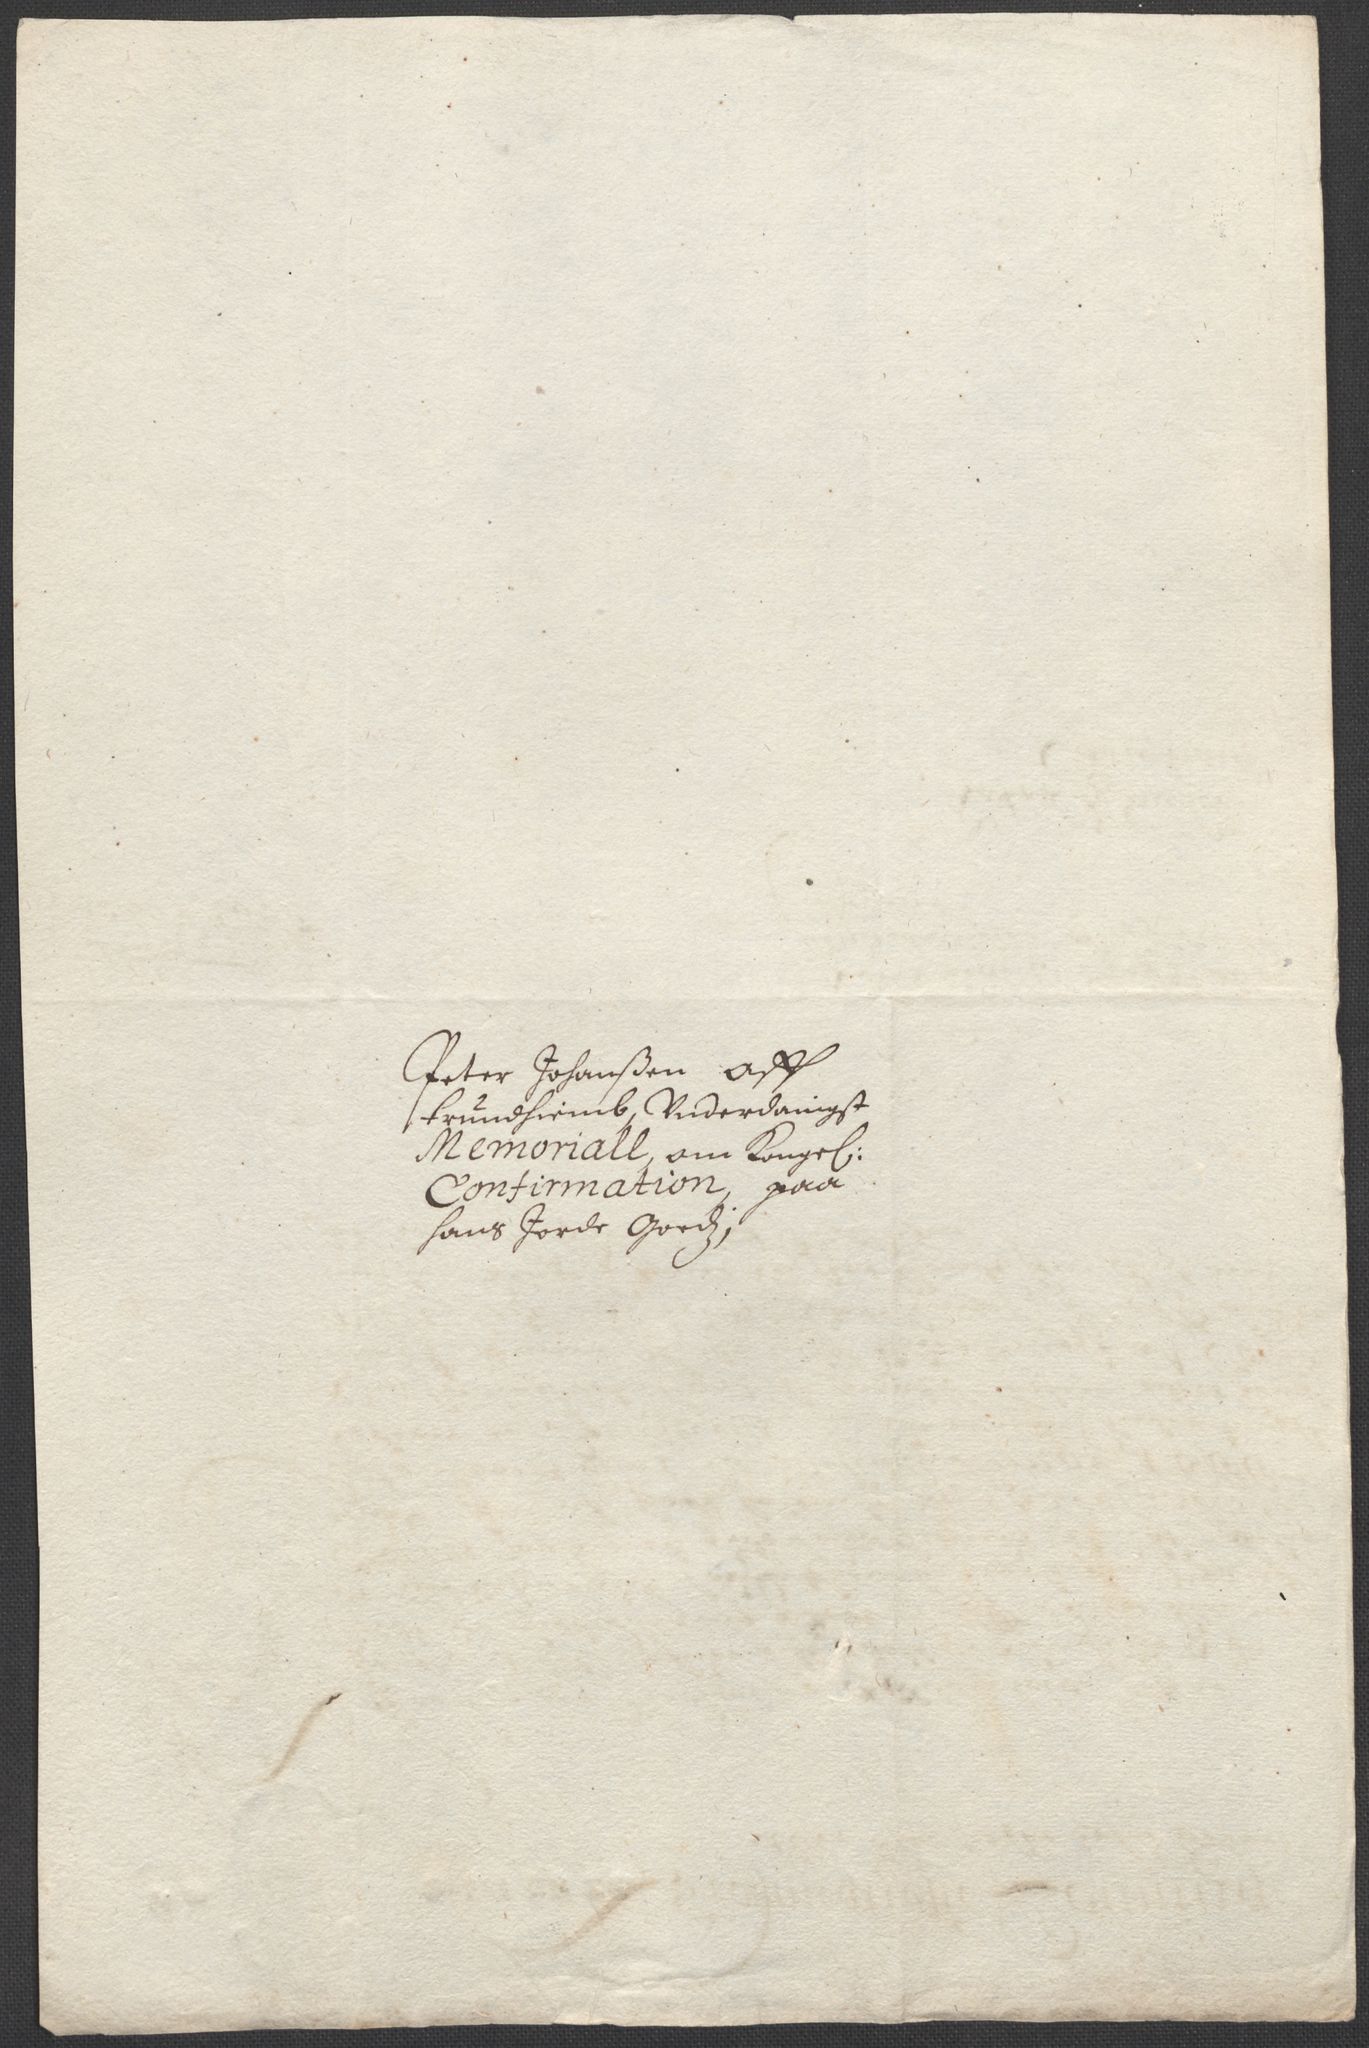 Peter Johanßen aff
trundhiemb, Vnderdanigst
Memoriall, om Kongel:
Confirmation, paa
hans Jorde Goedz;